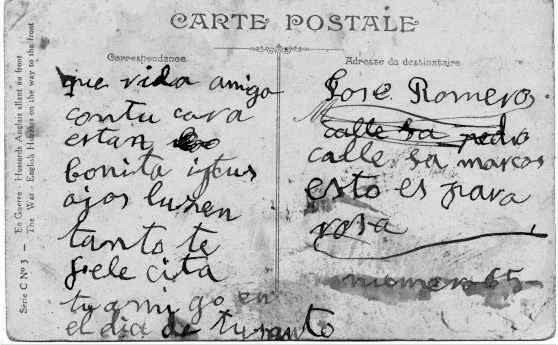 CARTE POSTALE
Correspondance
Adresse du destinataire
que vida amigo
contu cara
estan
bonita istus
ojos lusen
tanto te
felecita
tu amigo en
el dia de tu santo
José Romero
calle sa pedro
calle sa marcos
esto es para
rosa
numero 65
Série C Nº 3 — En Guerre - Hussards Anglais allant au front
The War - English Hussars on the way to the front